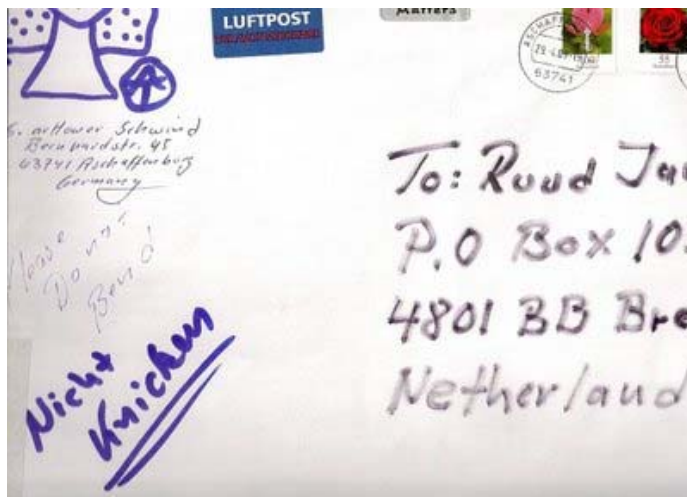 LUFTPOST
Matters
55
63741
Schwind
Bernhardstr. 45
63741 Aschaffenburg
Germany
Please
Don't
Bend
Nicht
Knicken
To: Ruud Ja
P.O Box 10
4801 BB Bre
Netherland